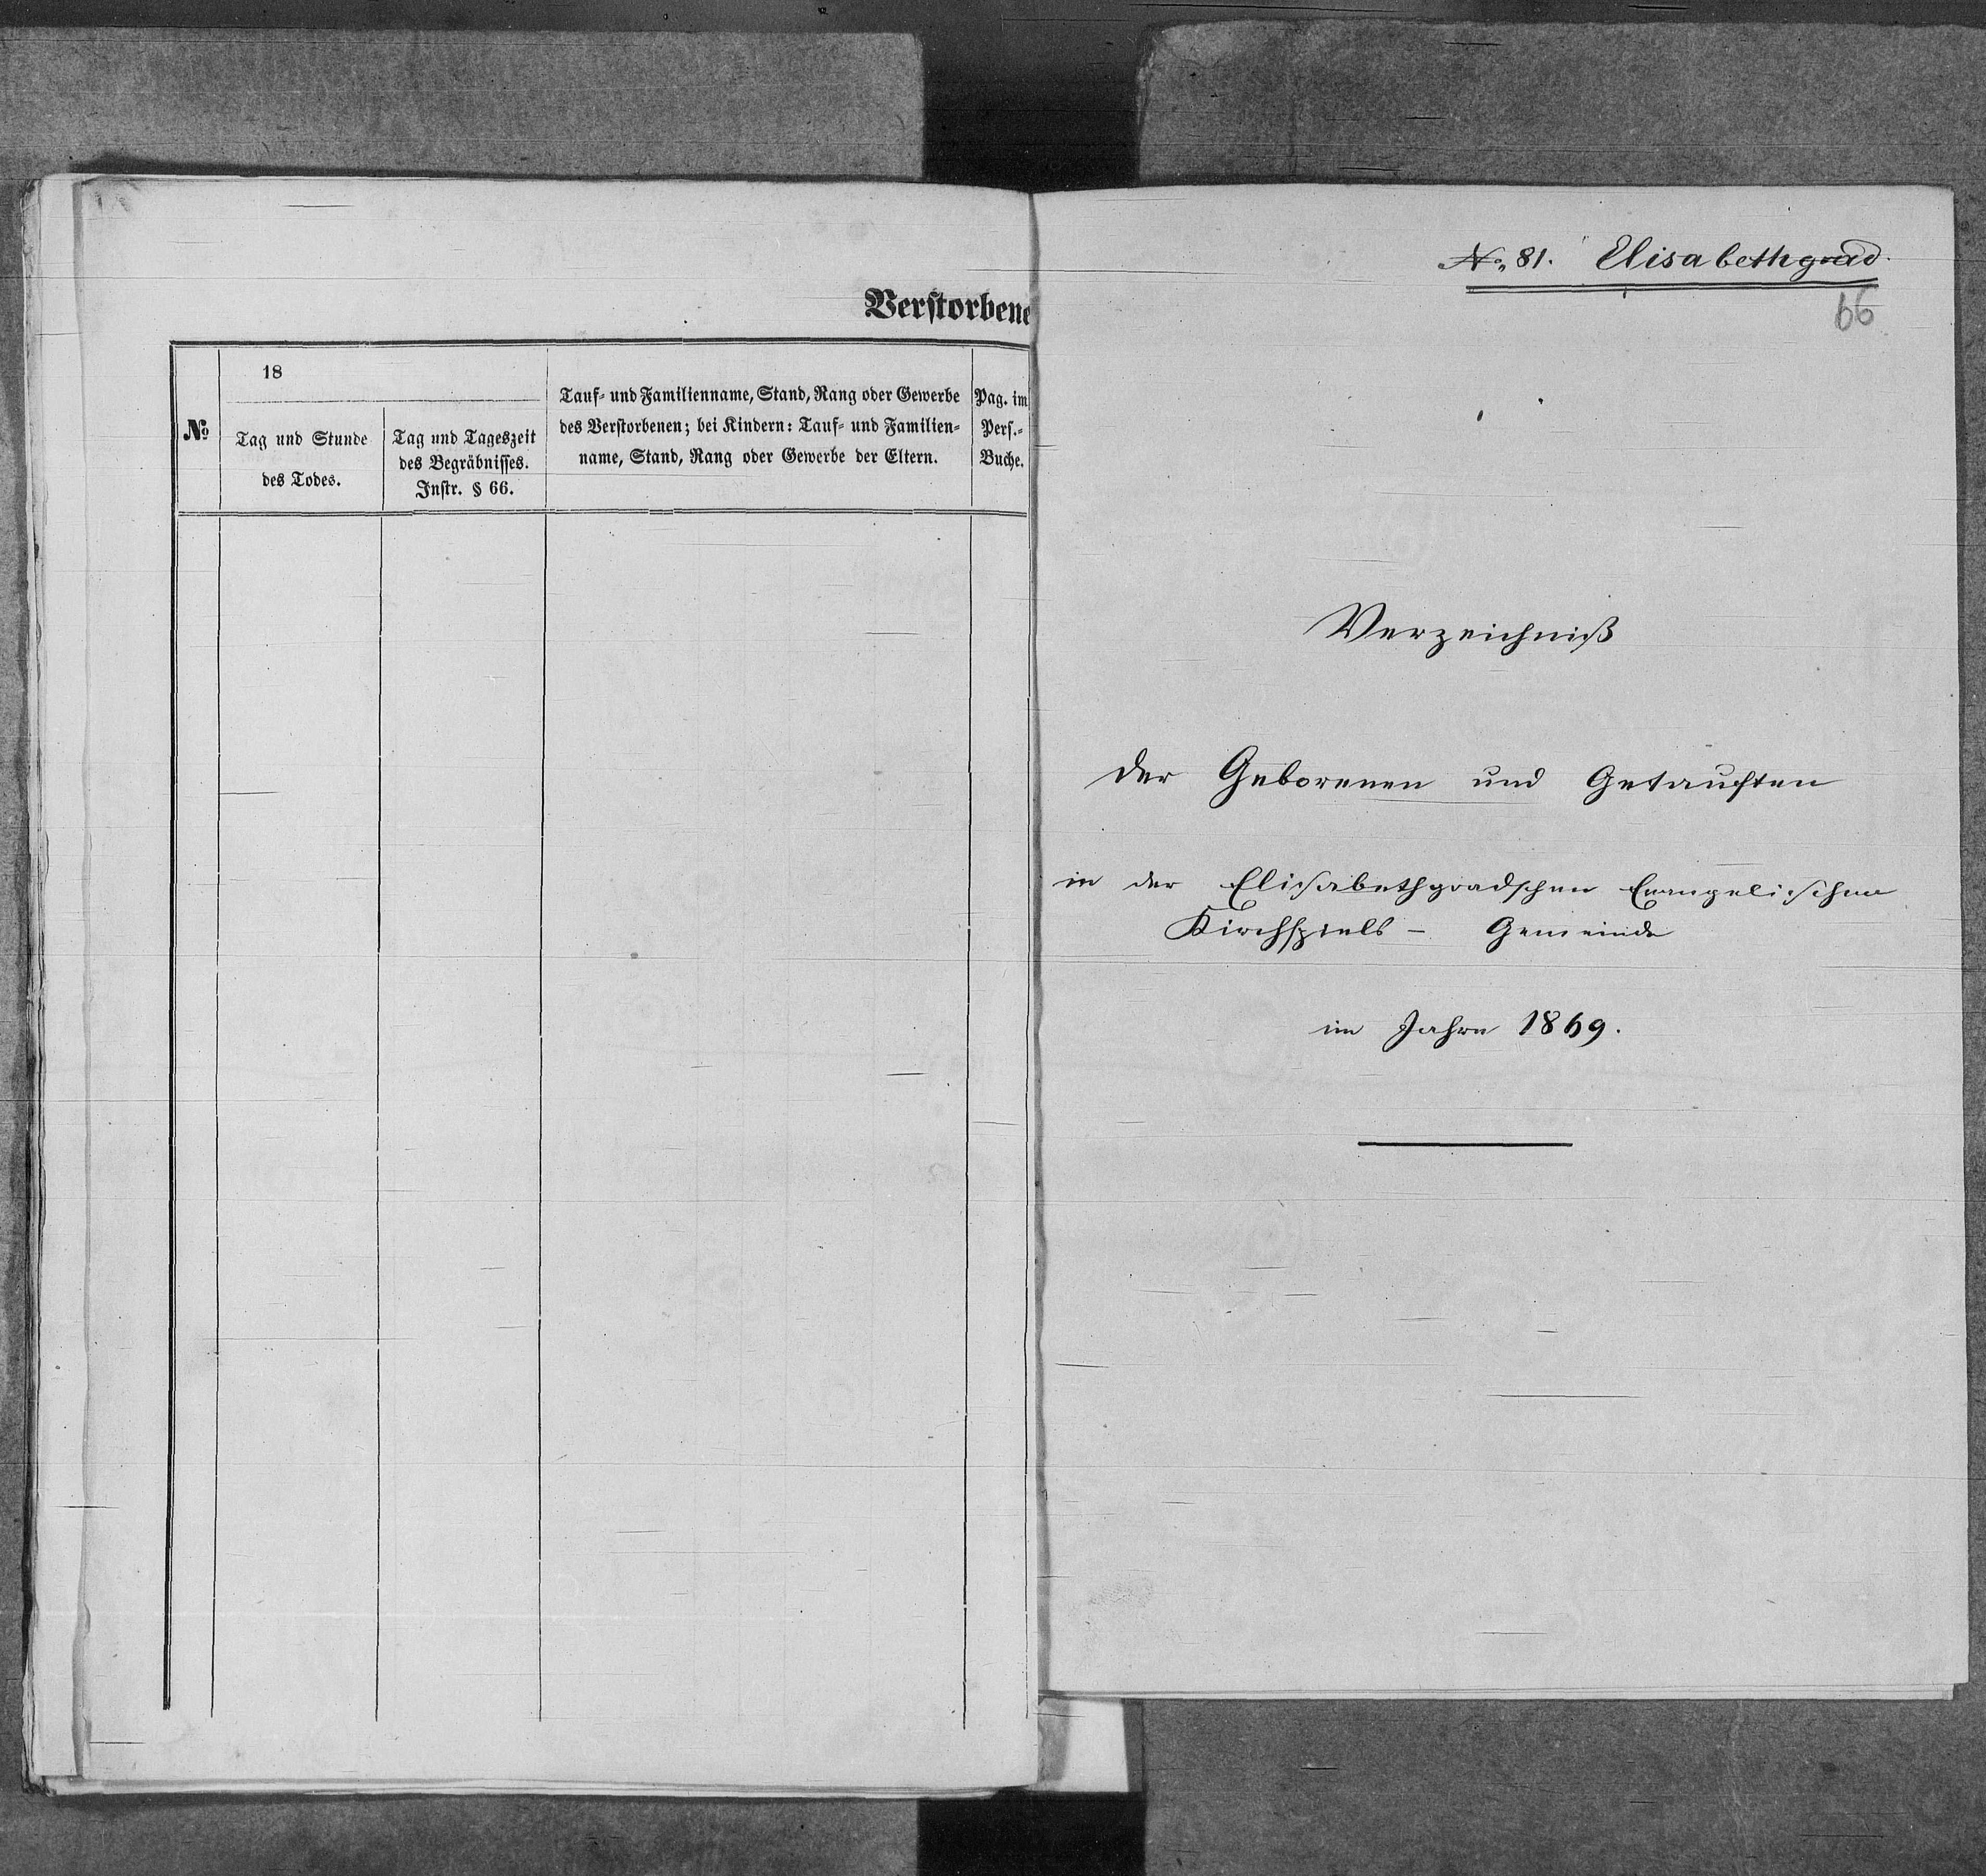 Verstorbene
№
18
Tag und Stunde
des Todes.
Tag und Tageszeit
des Begräbnisses.
Instr. § 66.
Tauf- und Familienname, Stand, Rang oder Gewerbe
des Verstorbenen; bei Kindern: Tauf- und Familien-
name, Stand, Rang oder Gewerbe der Eltern.
Pag. im
Pers.-
Buche.
No 81. Elisabethgrad.
66
Verzeichniß
der Geborenen und Getauften
in der Elisabethgradschen Evangelischen
Kirchspiels - Gemeinde
im Jahre 1869.